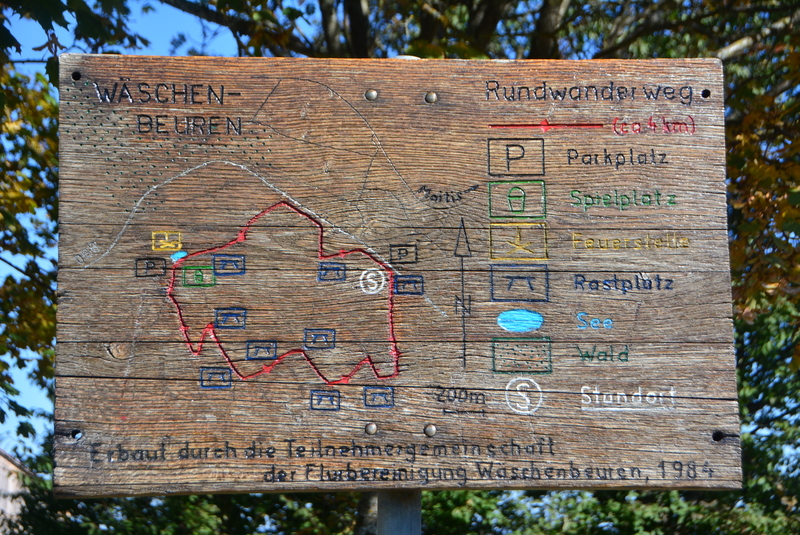 WÄSCHEN-
BEUREN
Rundwanderweg
(ca 4 km)
P Parkplatz
Spielplatz
Feuerstelle
Rastplatz
See
Wald
S Standort
Maitis
P
P
S
N
200m
Erbaut durch die Teilnehmergemeinschaft
der Flurbereinigung Wäschenbeuren, 1984